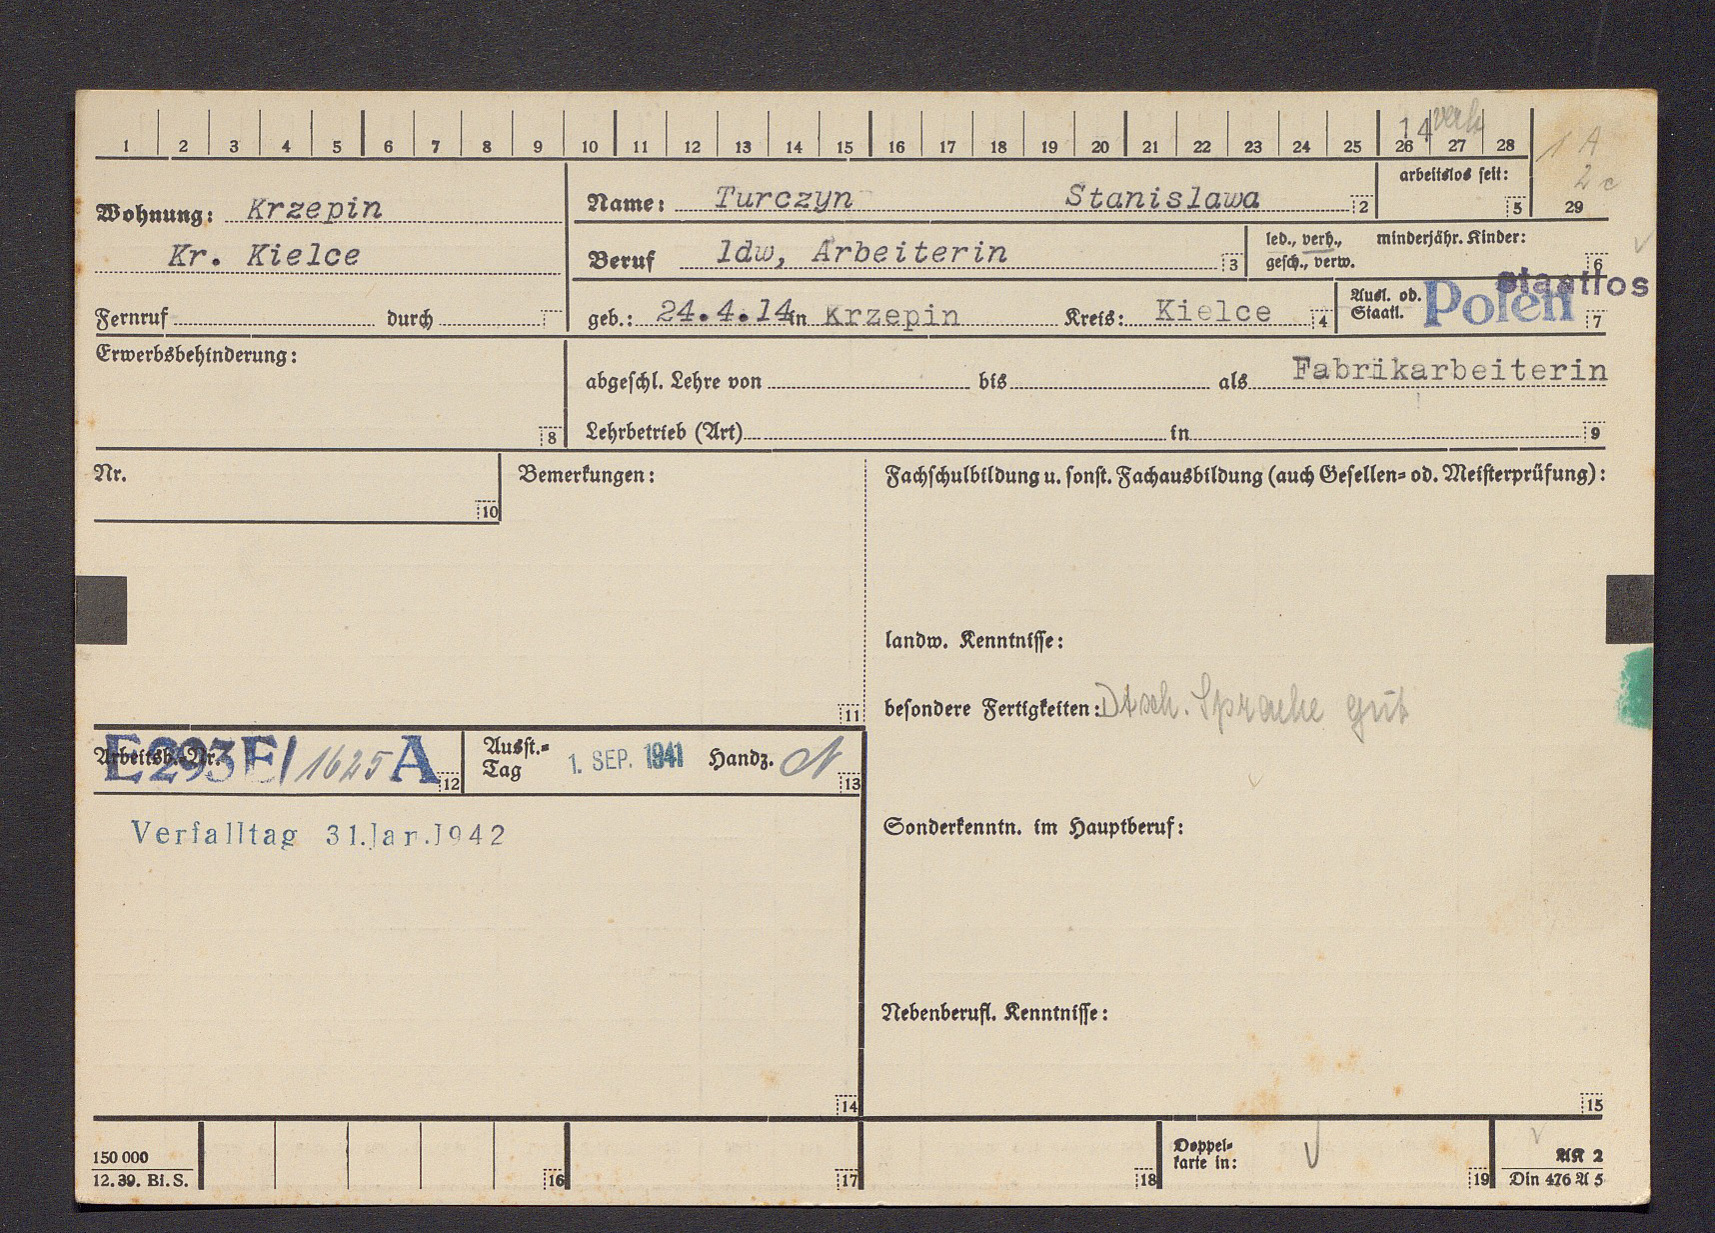 14 verh 1 A
1 2 3 4 5 6 7 8 9 10 11 12 13 14 15 16 17 18 19 20 21 22 23 24 25 26 27 28
2 c
29
arbeitslos seit:
5
Wohnung: Krzepin
Name: Turczyn Stanislawa 2
Kr. Kielce
Beruf ldw, Arbeiterin 3
led., verh., minderjähr. Kinder:
gesch., verw. 6
staatlos
Fernruf durch
geb.: 24.4.14 in Krzepin Kreis: Kielce 4
Ausl. od. Polen
Staatl. 7
Erwerbsbehinderung:
8
abgeschl. Lehre von bis als Fabrikarbeiterin
Lehrbetrieb (Art) in 9
Nr.
10
Bemerkungen:
11
Fachschulbildung u. sonst. Fachausbildung (auch Gesellen- od. Meisterprüfung):
landw. Kenntnisse:
besondere Fertigkeiten: Dtsch. Sprache gut
Arbeitsb.-Nr. E293E/1625 A 12
Ausst.-
Tag 1. SEP. 1941 Handz. 13
Verfalltag 31.Jan.1942
14
Sonderkenntn. im Hauptberuf:
Nebenberufl. Kenntnisse:
15
150 000
12. 39. Bi. S.
16 17 18
Doppel-
karte in: 19
AK 2
Din 476 A 5